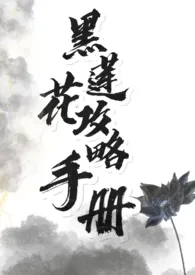 黑蓮花攻略手冊